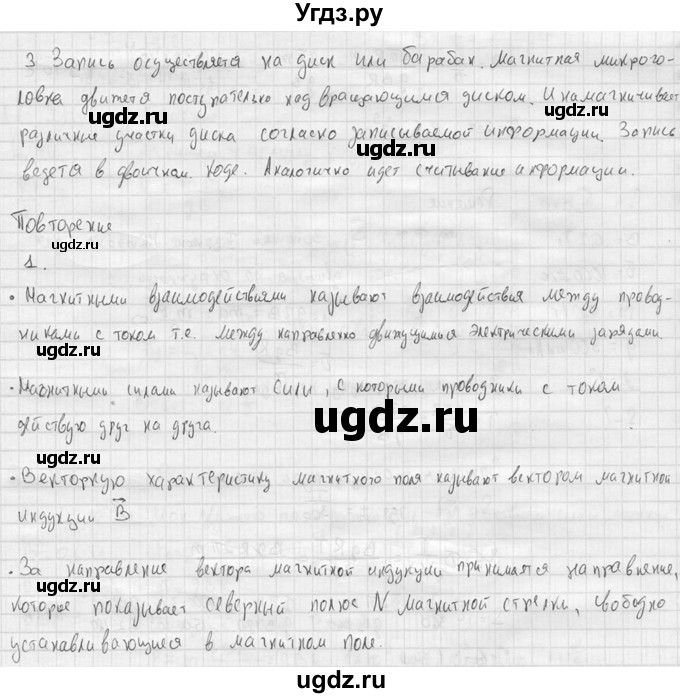 Угдз.ру
3 Запись осуществляется на диск или барабан. Магнитная микрого-
ловка движется поступательно над вращающимся диском. И намагничивает
различные участки диска согласно записываемой информации. Запись
ведется в двоичном коде. Аналогично идет считывание информации.
Повторение
1.
• Магнитными взаимодействиями называют взаимодействия между провод-
никами с током т.е. между направленно движущимися электрическими зарядами.
• Магнитными силами называют силы, с которыми проводники с током
действую друг на друга.
• Векторную характеристику магнитного поля называют вектором магнитной
индукции B⃗
• За направление вектора магнитной индукции принимается направление,
которое показывает северный полюс N магнитной стрелки, свободно
устанавливающиеся в магнитном поле.
ugdz.ru
ugdz.ru
ugdz.ru
ugdz.ru
ugdz.ru
ugdz.ru
ugdz.ru
ugdz.ru
ugdz.ru
ugdz.ru
ugdz.ru
ugdz.ru